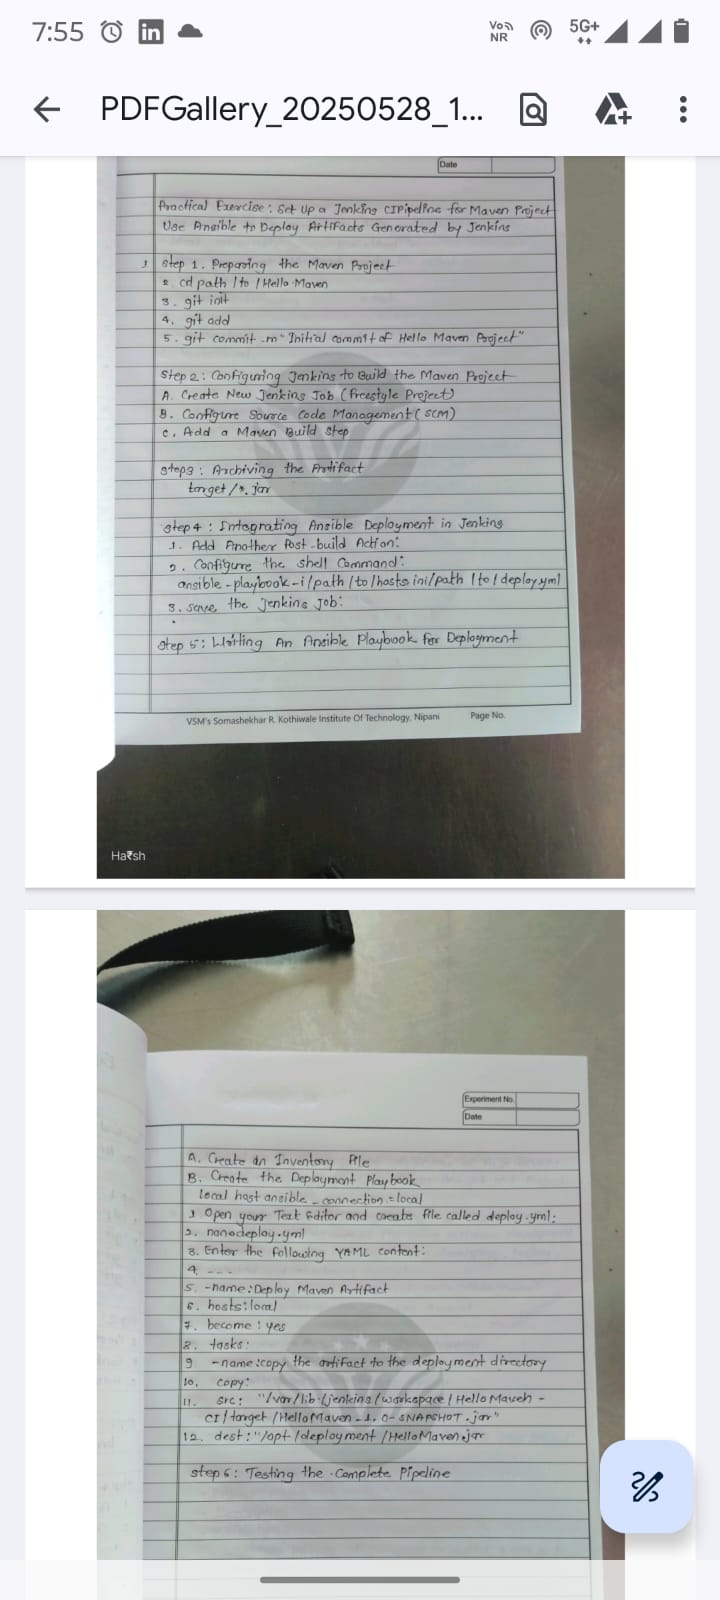 7:55
in
Vo
NR
5G+
PDFGallery_20250528_1...
Date
Practical Exercise : Set Up a Jenking CIPipeline for Maven Project
Use Ansible to Deploy Artifacts Generated by Jenkins
1 Step 1. Preparing the Maven Project
2. cd path / to / Hello Maven
3. git init
4. git add
5. git commit -m "Initial commit of Hello Maven Project"
Step 2 : Configuring Jenkins to Build the Maven Project
A. Create New Jenkins Job (Freestyle Project)
B. Configure Source Code Management (SCM)
C. Add a Maven Build Step
Step 3 : Archiving the Artifact
target /*. jar
Step 4 : Integrating Ansible Deployment in Jenking
1. Add Another Post-build Action:
2. Configure the shell Command:
ansible-playbook-i/path/to/hosts.ini/path/to/deploy.yml
3. save the Jenkins Job:
Step 5: Writing An Ansible Playbook for Deployment
VSM's Somashekhar R. Kothiwale Institute Of Technology, Nipani Page No.
Ha₹sh
Experiment No.
Date
A. Create an Inventory File
B. Create the Deployment Playbook
local host ansible _ connection = local
1 Open your Text Editor and create file called deploy.yml:
2. nanodeploy.yml
3. Enter the following YAML content:
4. ---
5. -name: Deploy Maven Artifact
6. hosts: local
7. become : yes
8. tasks:
9 -name: copy the artifact to the deployment directory
10. copy:
11. src: "/var/lib/jenkins/workspace/Hello Maven -
CI/target/HelloMaven-1.0-SNAPSHOT.jar"
12. dest:"/opt/deployment/HelloMaven.jar
step 6: Testing the Complete Pipeline